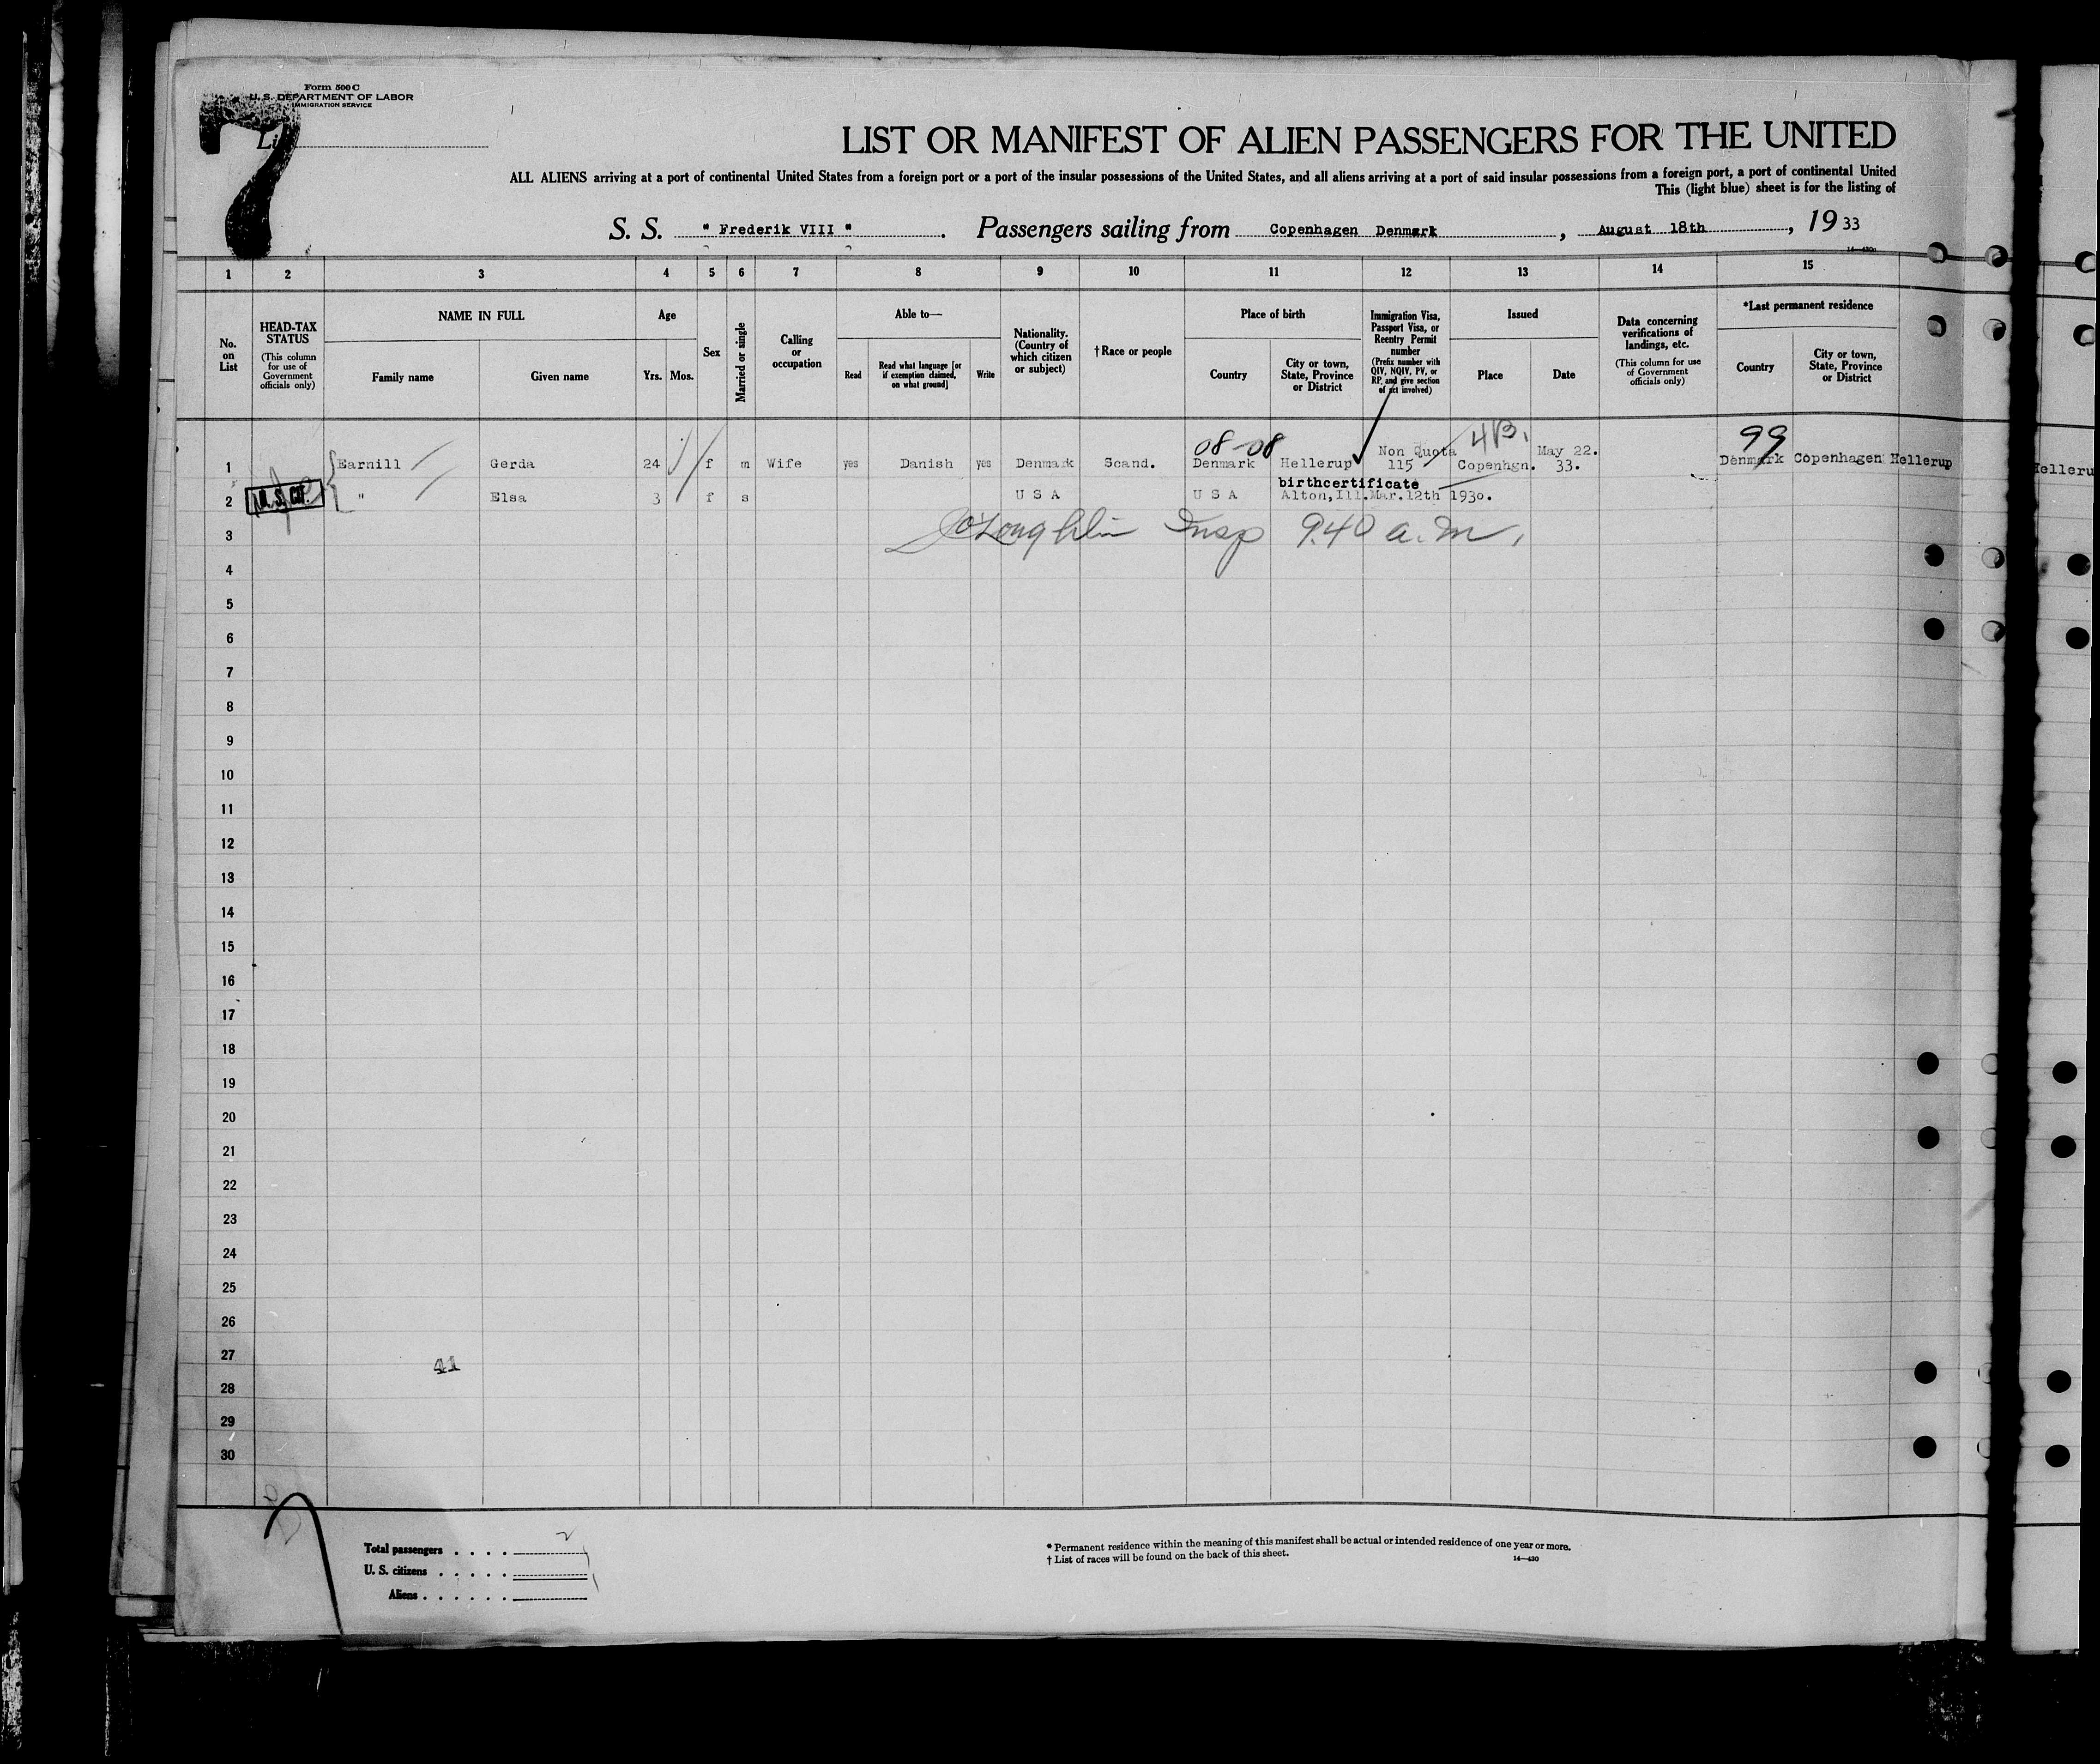 Form 500 C
U. S. DEPARTMENT OF LABOR
IMMIGRATION SERVICE
7
LIST OR MANIFEST OF ALIEN PASSENGERS FOR THE UNITED
ALL ALIENS arriving at a port of continental United States from a foreign port or a port of the insular possessions of the United States, and all aliens arriving at a port of said insular possessions from a foreign port, a port of continental United
This (light blue) sheet is for the listing of
S. S. " Frederik VIII ". Passengers sailing from Copenhagen Denmark, August 18th, 19 33
1 2 3 4 5 6 7 8 9 10 11 12 13 14 15
No. on List
HEAD-TAX STATUS
(This column for use of Government officials only)
NAME IN FULL
Family name
Given name
Age
Yrs. Mos.
Sex
Married or single
Calling or occupation
Able to—
Read
Read what language [or if exemption claimed, on what ground]
Write
Nationality. (Country of which citizen or subject)
†Race or people
Place of birth
Country
City or town, State, Province or District
Immigration Visa, Passport Visa, or Reentry Permit number
(Prefix number with QIV, NQIV, PV, or RP, and give section of act involved)
Issued
Place
Date
Data concerning verifications of landings, etc.
(This column for use of Government officials only)
*Last permanent residence
Country
City or town, State, Province or District
08-08 4B. 99
Non Quota May 22.
1 Earnill Gerda 24 f m Wife yes Danish yes Denmark Scand. Denmark Hellerup 115 Copenhgn. 33. Denmark Copenhagen Hellerup
birthcertificate
2 U. S. CIT. " Elsa 3 f s U S A U S A Alton, Ill. Mar. 12th 1930.
3 Insp 9.40 a.m.
4
5
6
7
8
9
10
11
12
13
14
15
16
17
18
19
20
21
22
23
24
25
26
27
41
28
29
30
Total passengers . . . . 2
U. S. citizens . . . . .
Aliens . . . . . .
* Permanent residence within the meaning of this manifest shall be actual or intended residence of one year or more.
† List of races will be found on the back of this sheet.
14—430